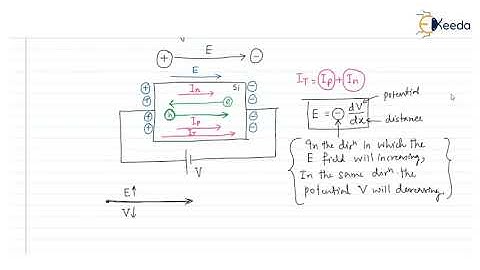 Ekeeda
V
+ E −
E
I_n
Si
e
h
I_p
I_T
V
E↑
V↓
I_T = I_p + I_n
E = − dV/dx
potential
distance
In the dirⁿ in which the
E field will increasing,
In the same dirⁿ the
potential V will decreasing